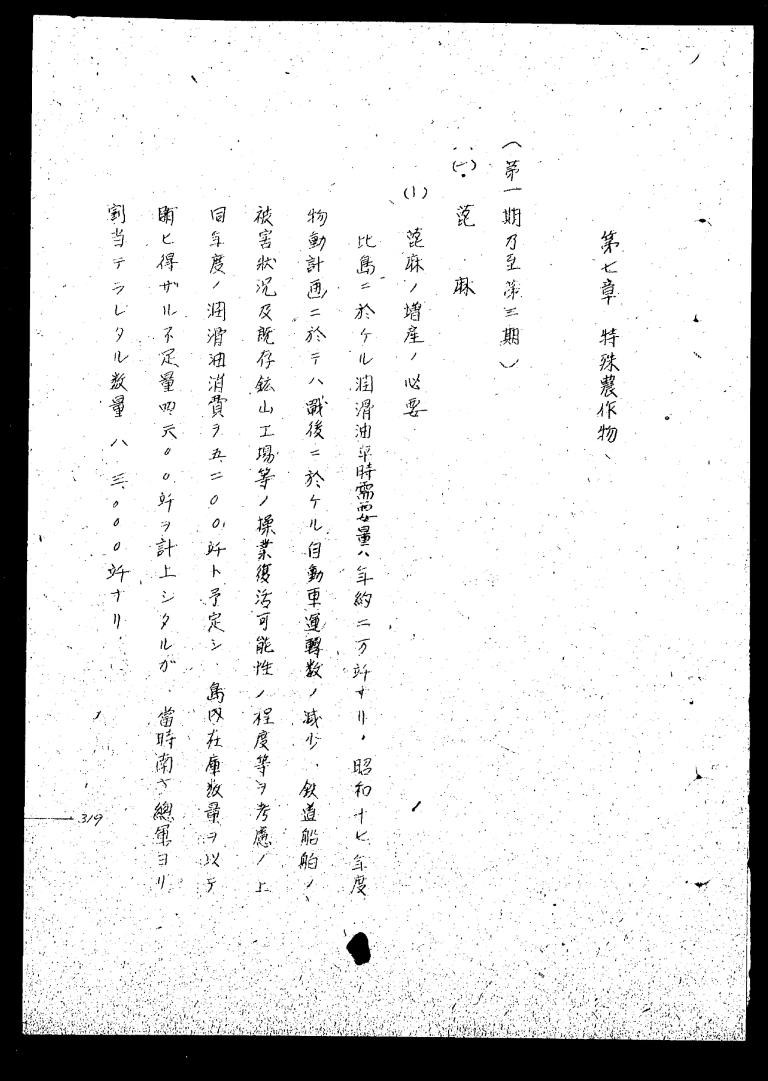 第七章　特殊農作物、
（第一期乃至第三期）
(一)　蓖麻
(1)　蓖麻ノ増産ノ必要
比島ニ於ケル潤滑油平時需要量ハ年約二万竏ナリ，昭和十七年度
物動計画ニ於テハ戰後ニ於ケル自動車運轉数ノ减少、鉄道船舶ノ
被害狀况及既存鉱山工場等ノ操業復活可能性ノ程度等ヲ考慮ノ上
同年度ノ潤滑油消費ヲ五二〇〇竏ト予定シ、島内在庫数量ヲ以テ
賄ヒ得ザル不足量四六〇〇竏ヲ計上シタルガ、當時南方總軍ヨリ
割当テラレタル数量ハ三、〇〇〇竏ナリ
319